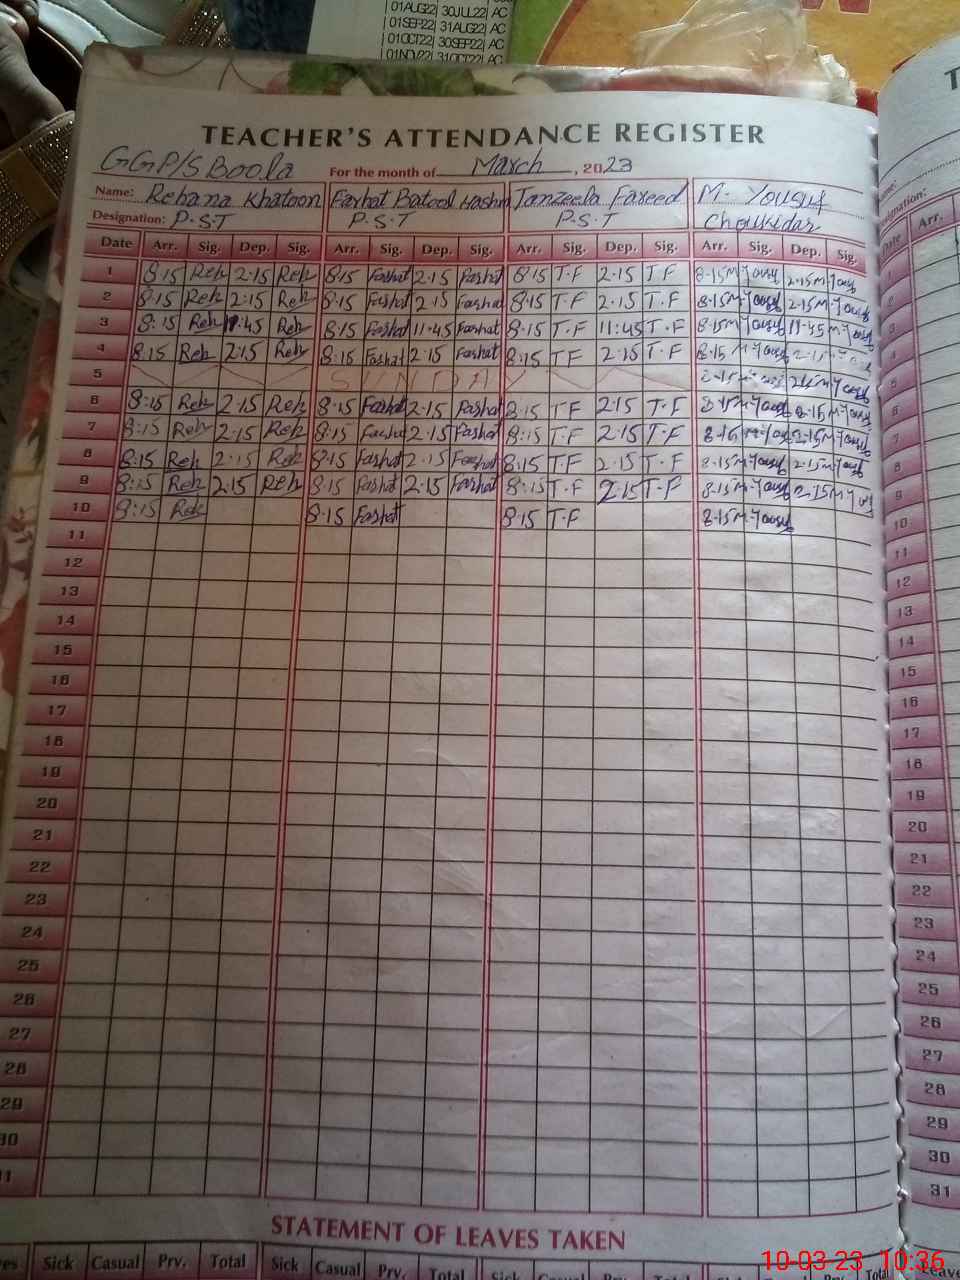 01AUG22| 30JUL22| AC
01SEP22| 31AUG22| AC
01OCT22| 30SEP22| AC
01NOV22| 31OCT22| AC
TEACHER'S ATTENDANCE REGISTER
GGP/S Boola For the month of March, 2023
Name: Rehana Khatoon Farhat Batool Hashm Tanzeela Fareed M. Yousuf
Designation: P.S.T P.S.T P.S.T Choukidar
Date Arr. Sig. Dep. Sig. Arr. Sig. Dep. Sig. Arr. Sig. Dep. Sig. Arr. Sig. Dep. Sig.
1 8:15 Reh 2:15 Reh 8:15 Farhat 2:15 Farhat 8:15 T.F 2:15 T F 8:15 M.Yousf 2:15 M.Yousf
2 8:15 Reh 2:15 Reh 8:15 Farhat 2:15 Farhat 8:15 T.F 2:15 T.F 8:15 M.Yousf 2:15 M.Yousf
3 8:15 Reh 11:45 Reh 8:15 Farhat 11:45 Farhat 8:15 T.F 11:45 T.F 8:15 M.Yousf 11:45 M.Yousf
4 8:15 Reh 2:15 Reh 8:15 Farhat 2:15 Farhat 8:15 T F 2:15 T.F 8:15 M.Yousf 2:15
5 SUNDAY 2:15 M.Yousf
6 8:15 Reh 2:15 Reh 8:15 Farhat 2:15 Farhat 8:15 T F 2:15 T.F 8:15 M.Yousf 2:15 M.Yousf
7 8:15 Reh 2:15 Reh 8:15 Farhat 2:15 Farhat 8:15 T.F 2:15 T.F 8:15 M.Yousf 2:15 M.Yousf
8 8:15 Reh 2:15 Reh 8:15 Farhat 2:15 Farhat 8:15 T.F 2:15 T.F 8:15 M.Yousf 2:15 M.Yousf
9 8:15 Reh 2:15 Reh 8:15 Farhat 2:15 Farhat 8:15 T.F 2:15 T.F 8:15 M.Yousf 2:15 M.Yousf
10 8:15 Reh 8:15 Farhat 8:15 T.F 8:15 M.Yousf
11
12
13
14
15
16
17
18
19
20
21
22
23
24
25
26
27
28
29
30
STATEMENT OF LEAVES TAKEN
Sick Casual Prv. Total Sick Casual Prv. Total Sick Casual Prv. Total Sick Casual Prv. Total
Arr.
Date
1
2
3
4
5
6
7
8
9
10
11
12
13
14
15
16
17
18
19
20
21
22
23
24
25
26
27
28
29
30
31
10-03-23 10:36